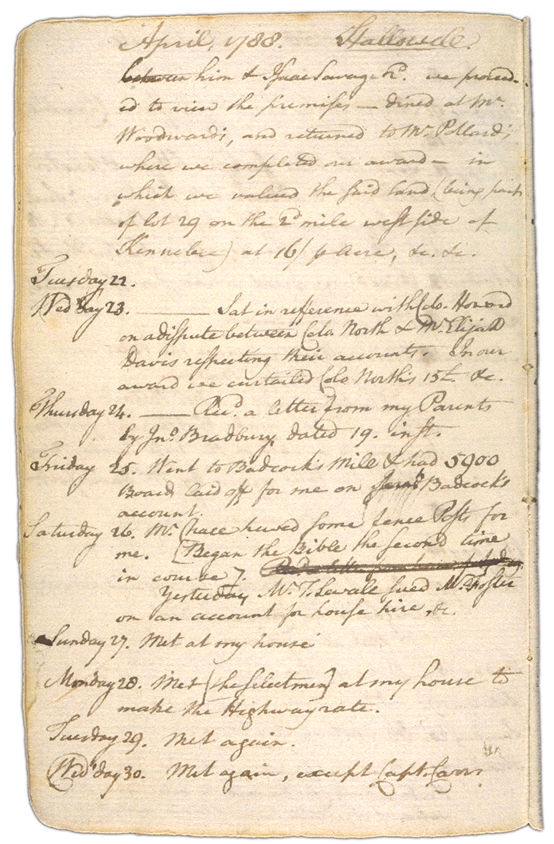 April, 1788. Hallowell.
between him & Isaac Savage 2d. we proceed-
ed to view the premises — dined at Mr.
Woodward's, and returned to Mr. Pollard's,
where we completed our award — in
which we valued the said land (being part
of lot 29 on the 2d mile west side of
Kennebec) at 16/ p Acre, &c. &c.
Tuesday 22.
Wed'sday 23. ——— Sat in reference with Colo. Howard
on a dispute between Colo. North & Mr. Elijah
Davis respecting their accounts. In our
award we curtailed Colo North's 15£ &c.
Thursday 24. —— Rec'd. a letter from my Parents
by Jno. Bradbury dated 19. inst.
Friday 25. Went to Badcock's Mill & had 5900
Boards laid off for me on Badcock's
account.
Saturday 26. Mr. Chace hewed some fence Posts for
me. [Began the Bible the second time
in course].
Yesterday Mr. T. Sewall sued Mr. Foster
on an account for house hire, &c.
Sunday 27. Met at my house
Monday 28. Met [the Selectmen] at my house to
make the Highway rate.
Tuesday 29. Met again.
Wed'sday 30. Met again, except Capt.